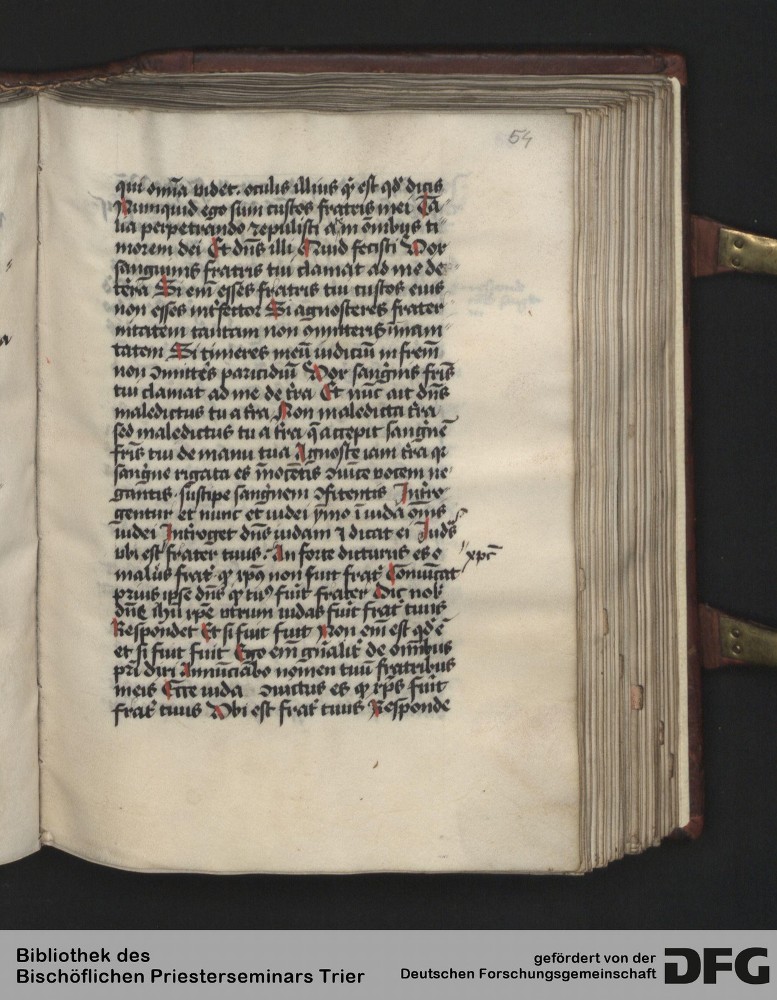 54
qui om̄a videt. oculis illius qͥ est qd̕ dicis
Numquid ego sum custos fratris mei Ta
lia perpetrando repulisti a ōmibus ti
morem dei Et dn̄s illi Quid fecisti Vox
sanguinis fratris tui clamat ad me de
terra Si em̄ esses fratris tui custos eius
non esses int̕fector Si agnosceres frater
nitatem tantam non ꝯmitteris īmani
tatem Si timeres meū iudiciū in frem̄
non ꝯmittēs paricidiū Vox sang̕nis fr̄is
tui clamat ad me de t̕ra Et nūc ait dn̄s
maledictus tu a t̕ra Non maledicta t̕ra
sed maledictus tu a t̕ra q̄ accepit sang̕nē
fr̄is tui de manu tua Agnosce iam t̕ra qͥ
sang̕ne rigata es īnocētis ꝯuīce vocem ne
gantis. suscipe sang̕nem ꝯfitentis Int̕ro
gentur et nunc et iudei ymo ī iuda om̄s
iudei Int̕roget dn̄s iudam ⁊ dicat ei Iuda
vbi est frater tuus An forte dicturus es o
xpc̄
malus frat̕ qͥ ip̄a non fuit frat̕ Conuīcat
prius ipse dn̄s qͥ tuꝰ fuit frater Dic nob̕
dn̄e ih̄u xp̄e vtrum iudas fuit frat̕ tuus
Respondet Et si fuit fuit Non em̄ est qd̕ ē
et si fuit fuit Ego em̄ gn̄alit̕ de omībus
pri dixi Annūciabo nomen tuū fratribus
meis Ecce iuda ꝯuictus es qͥ xp̄s fuit
frat̕ tuus Vbi est frat̕ tuus Responde
Bibliothek des
Bischöflichen Priesterseminars Trier
gefördert von der
Deutschen Forschungsgemeinschaft
DFG